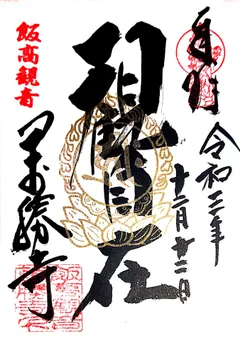 奉拝
令和三年
十二月廿二日
自在
飯高観音
万勝寺